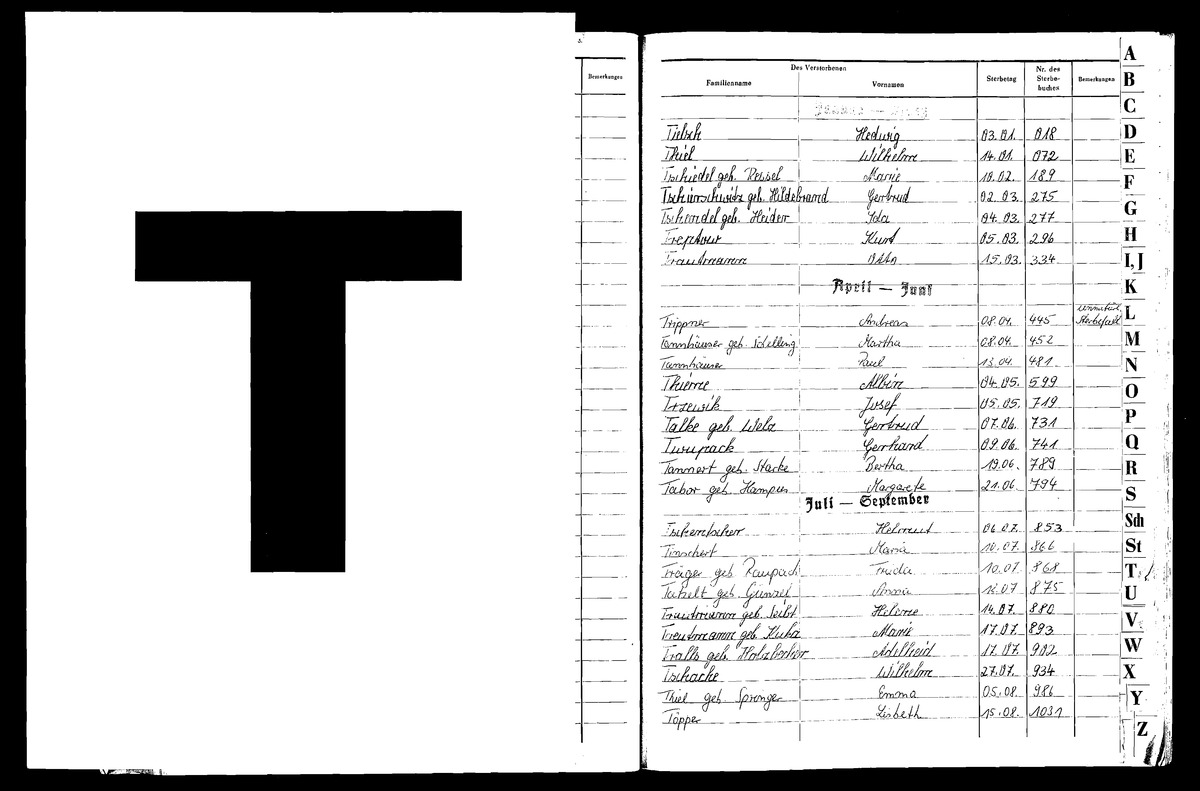 T
Bemerkungen
Des Verstorbenen
Familienname Vornamen Sterbetag Nr. des Sterbe-buches Bemerkungen
Januar — März
Tietsch Hedwig 03.01. 018
Thiel Wilhelm 14.01. 072
Tschiedel geb. Ressel Marie 10.02. 189
Tschirschwitz geb. Hildebrand Gertrud 02.03. 275
Tschendel geb. Heider Ida 04.03. 277
Treptow Kurt 05.03. 296
Trautmann Otto 15.03. 334
April — Juni
Trippner Andreas 08.04. 445 Sterbefall
Tannhäuser geb. Schilling Martha 08.04. 452
Tannhäuser Paul 13.04. 481
Thieme Albin 04.05. 599
Trzewik Josef 05.05. 719
Talke geb. Welz Gertrud 07.06. 731
Twupack Gerhard 09.06. 741
Tannert geb. Starke Bertha 19.06. 789
Tabor geb. Hampus Margarete 21.06. 794
Juli — September
Tschentscher Helmut 06.07. 853
Tinschert Maria 10.07. 866
Träger geb. Raupach Frida 10.07. 868
Tatzelt geb. Günzel Anna 12.07 875
Trautmann geb. Seibt Helene 14.07. 880
Treutmann geb. Kuhn Marie 17.07. 893
Tralls geb. Holzbecher Adelheid 17.07. 902
Tschacke Wilhelm 27.07. 934
Thiel geb Sprenger Emma 05.08. 986
Töpper Lisbeth 15.08. 1031
A
B
C
D
E
F
G
H
I, J
K
L
M
N
O
P
Q
R
S
Sch
St
T
U
V
W
X
Y
Z